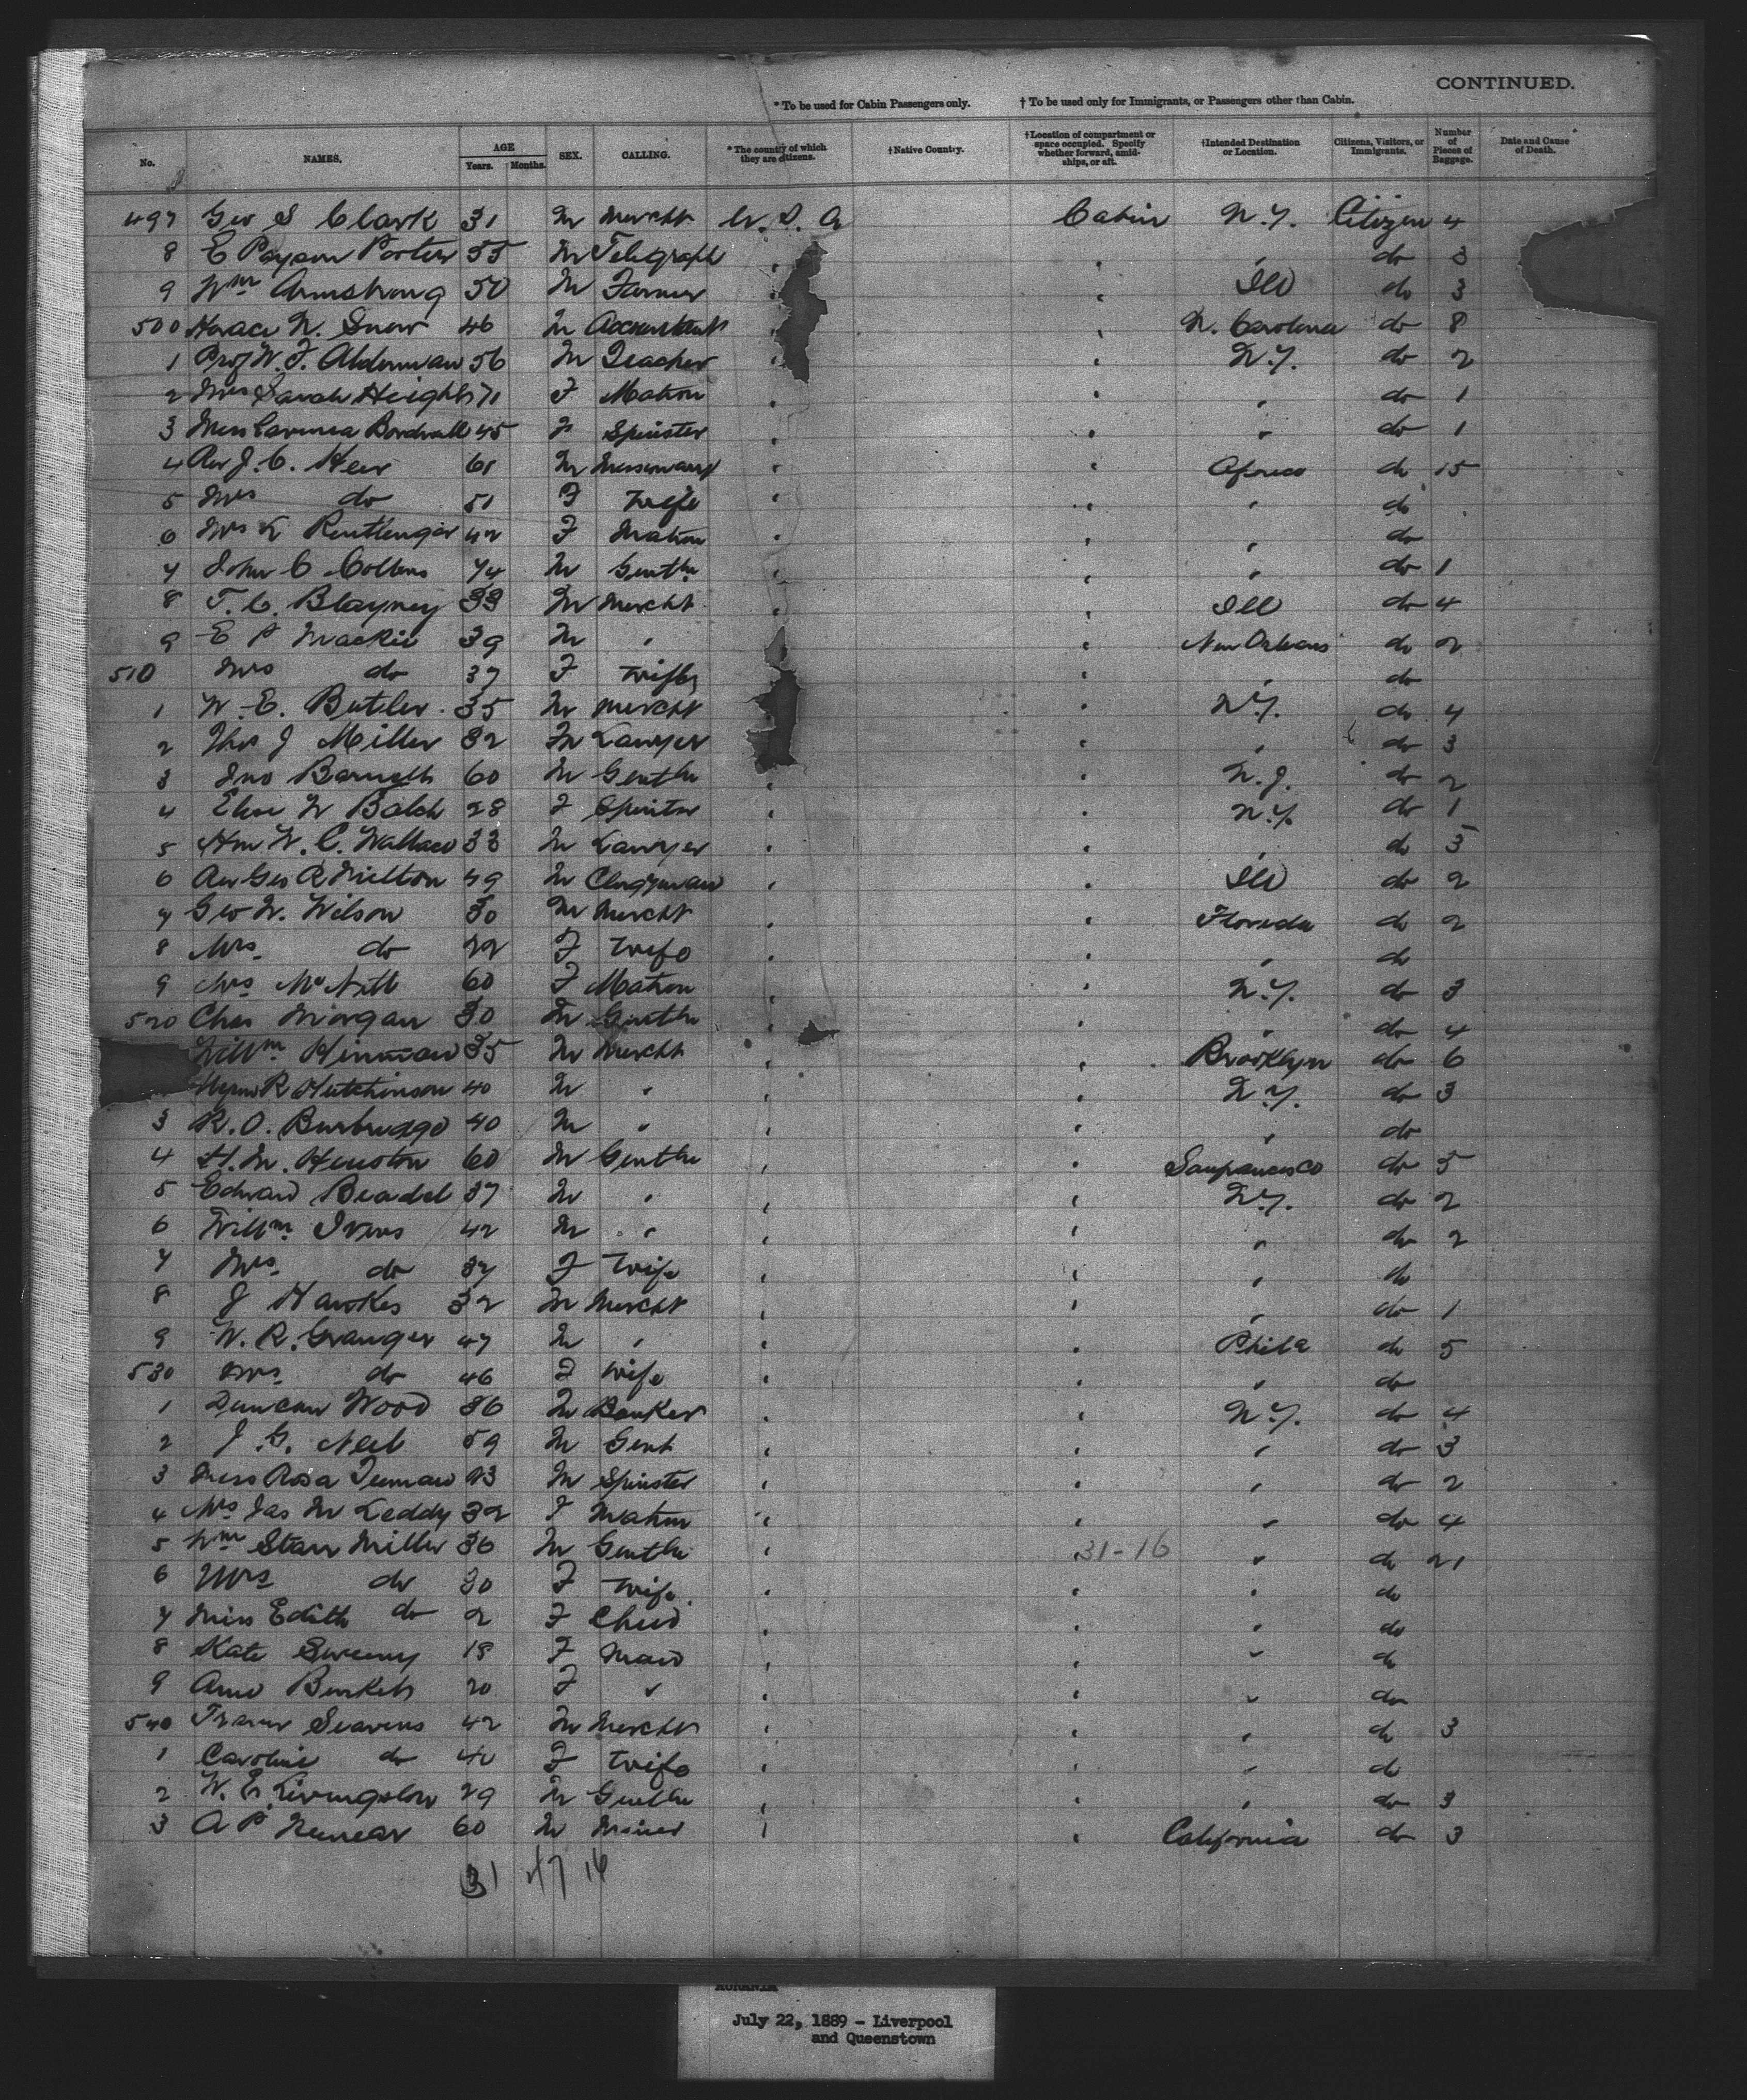 CONTINUED.
* To be used for Cabin Passengers only. † To be used only for Immigrants, or Passengers other than Cabin.
No. NAMES. AGE Years. Months. SEX. CALLING. * The country of which they are citizens. †Native Country. †Location of compartment or space occupied. Specify whether forward, amidships, or aft. †Intended Destination or Location. Citizens, Visitors, or Immigrants. Number of Pieces of Baggage. Date and Cause of Death.
497 Geo S Clark 31 M Mercht U. S. A Cabin N.Y. Citizen 4
8 E Payson Porter 55 M Telegraph " " " do 3
9 Wm Armstrong 50 M Farmer " " Ill do 3
500 Horace N. Snow 46 M Accountant " N. Carolina do 8
1 Prof W. F. Alderman 56 M Teacher " " N.Y. do 2
2 Mrs Sarah Height 71 F Matron " " " do 1
3 Miss Bordwell 45 F Spinster " " " do 1
4 Rev J. C. 61 M Missionary " " Africa do 15
5 Mrs do 51 F Wife " " " do
6 Mrs L 42 F Matron " " " do
7 John C Collins 74 M Gentln " " " do 1
8 T. C. Blayney 33 M Mercht " Ill do 4
9 E P Mackie 39 M " " New Orleans do 2
510 Mrs do 37 F Wife " " do
1 W. E. Butler 35 M Mercht " N.Y. do 4
2 Thos J Miller 32 M Lawyer " " do 3
3 Jno Barnett 60 M Gentln " " N.J. do 2
4 Elise W Balch 28 F Spinster " " N.Y. do 1
5 Hon W. C. Wallace 33 M Lawyer " " " do 5
6 Rev Geo R Milton 49 M Clergyman " " Ill do 2
7 Geo W. Wilson 30 M Mercht " " Florida do 2
8 Mrs do 22 F Wife " " " do
9 Mrs McNitt 60 F Matron " " N.Y. do 3
520 Chas Morgan 30 M Gentln " " " do 4
Willm Hinman 35 M Mercht " " Brooklyn do 6
R Hutchinson 40 M " " " N.Y. do 3
3 R. O. Burbridge 40 M " " " " do
4 H. M. Heuston 60 M Gentln " " Sanfrancisco do 5
5 Edward Beadel 37 M " " " N.Y. do 2
6 Willm Ivins 42 M " " " " do 2
7 Mrs do 37 F Wife " " " do
8 J Hawkes 32 M Mercht " " " do 1
9 W. R. Granger 47 M " " " Phila do 5
530 Mrs do 46 F Wife " " " do
1 Duncan Wood 36 M Banker " " N.Y. do 4
2 J. G. Neel 59 M Gent " " " do 3
3 Miss Rosa 23 M Spinster " " " do 2
4 Mrs Jas M Leddy 32 F Matron " " " do 4
5 Wm Starr Miller 36 M Gentln " 31-16 " do 21
6 Mrs do 30 F Wife " " " do
7 Miss Edith do 2 F Child " " " do
8 Kate Sweeny 18 F Maid " " " do
9 Anne 20 F " " " " do
540 42 M Mercht " " " do 3
1 Caroline do 40 F Wife " " " do
2 W. E. Livingston 29 M Gentln " " " do 3
3 A P 60 M Miner " " California do 3
31 47 16
AURANIA
July 22, 1889 - Liverpool
and Queenstown